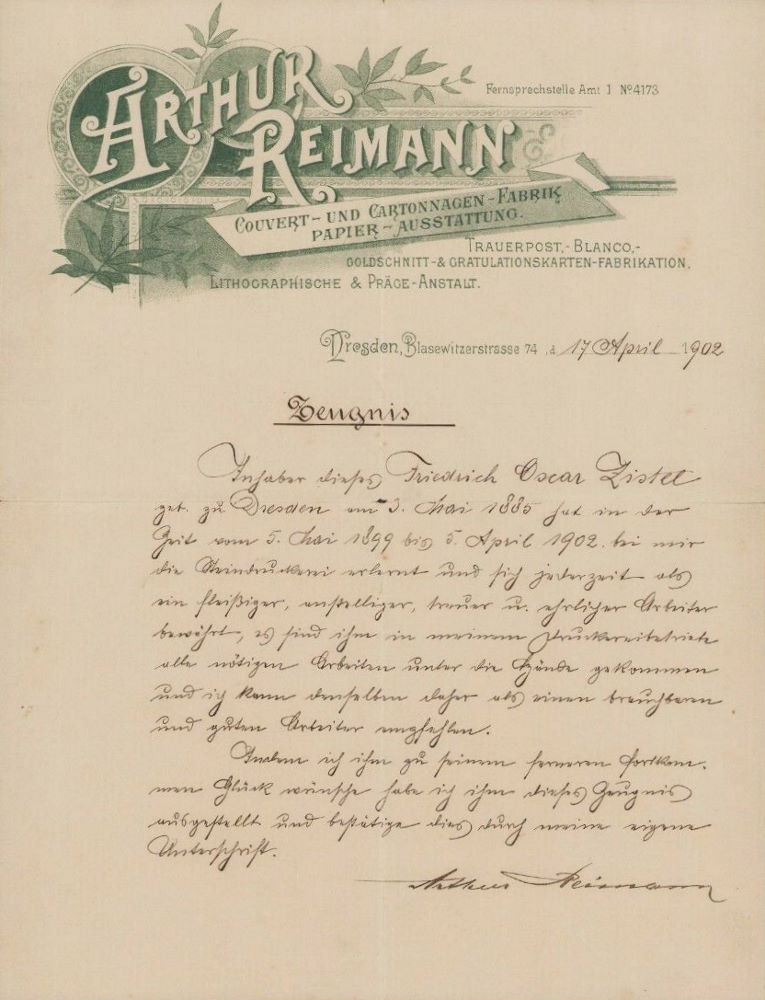 ARTHUR
REIMANN
Fernsprechstelle Amt 1 № 4173
COUVERT- UND CARTONNAGEN-FABRIK
PAPIER-AUSSTATTUNG.
TRAUERPOST,- BLANCO,-
GOLDSCHNITT-& GRATULATIONSKARTEN-FABRIKATION,
LITHOGRAPHISCHE & PRÄGE-ANSTALT.
Dresden, Blasewitzerstrasse 74, d. 17 April 1902
Zeugnis
Inhaber dieses Friedrich Oscar Zistel
geb. zu Dresden am 3. Mai 1885 hat in der
Zeit vom 5. Mai 1899 bis 5. April 1902. bei mir
die Steindruckerei erlernt und sich jederzeit als
ein fleißiger, anstelliger, treuer u. ehrlicher Arbeiter
bewährt, es sind ihm in meinem Druckereibetriebe
alle nötigen Arbeiten unter die Hände gekommen
und ich kann denselben daher als einen brauchbaren
und guten Arbeiter empfehlen.
Indem ich ihm zu seinem ferneren Fortkom-
men Glück wünsche habe ich ihm dieses Zeugnis
ausgestellt und bestätige dies durch meine eigene
Unterschrift.
Arthur Reimann